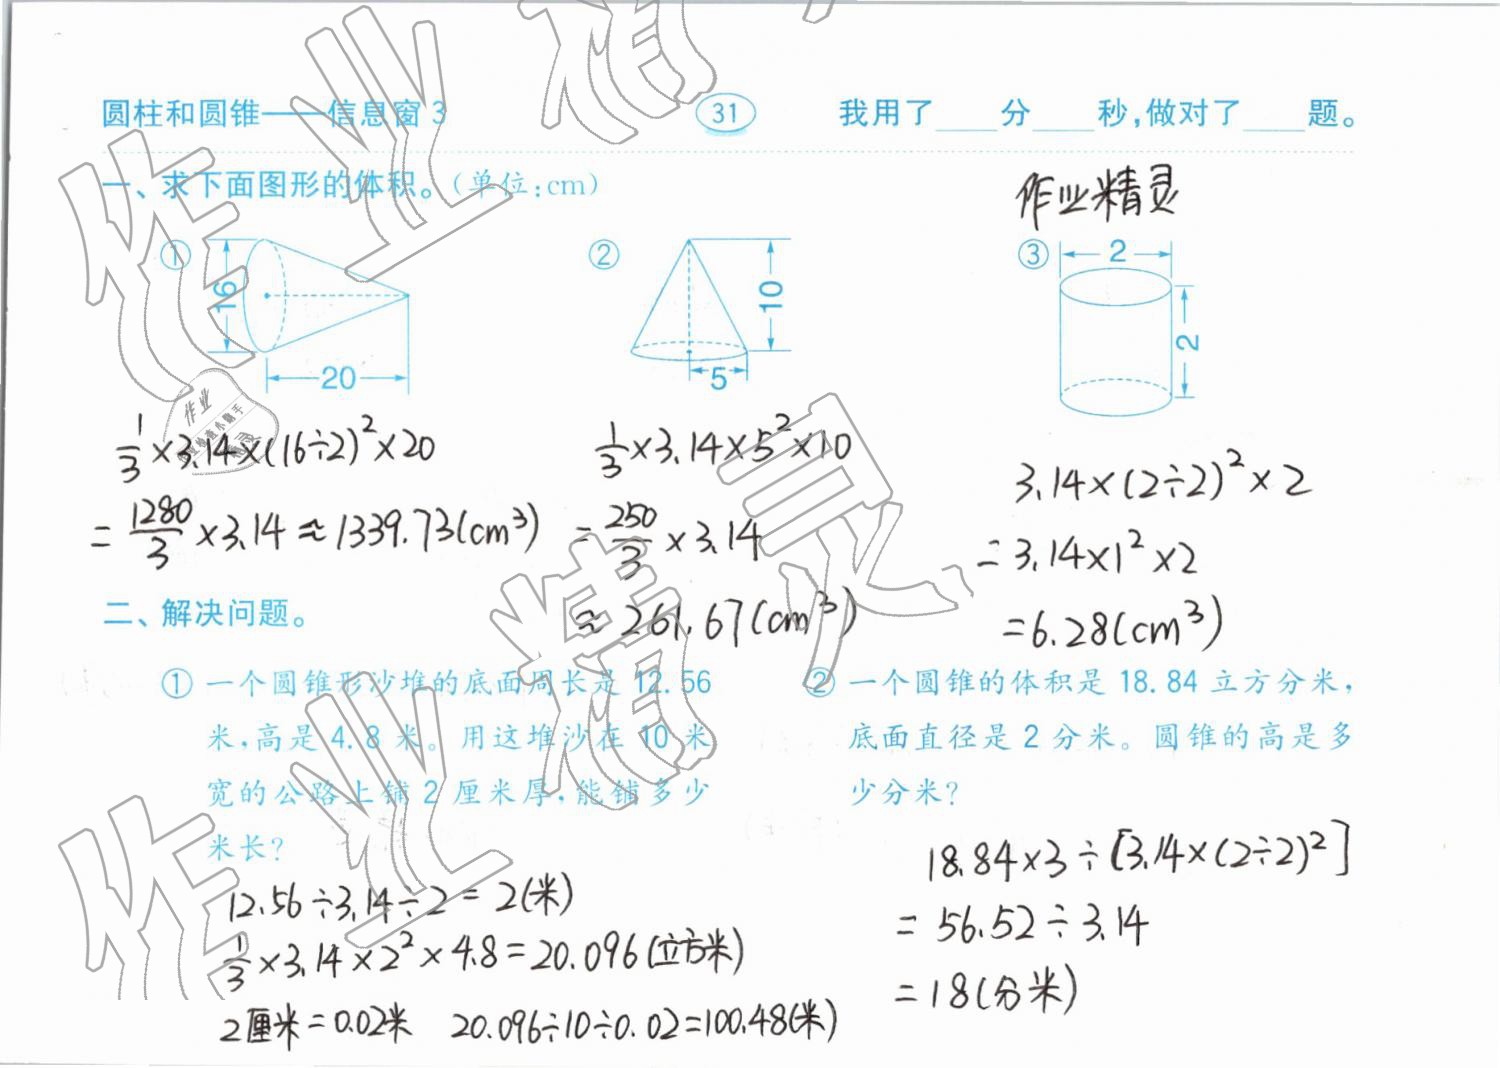 圆柱和圆锥——信息窗3 31 我用了____分____秒,做对了____题。
一、求下面图形的体积。(单位:cm)
作业精灵
① 16 20
② 10 5
③ 2 2
1/3×3.14×(16÷2)²×20
=1280/3×3.14≈1339.73(cm³)
1/3×3.14×5²×10
=250/3×3.14
≈261.67(cm³)
3.14×(2÷2)²×2
=3.14×1²×2
=6.28(cm³)
二、解决问题。
① 一个圆锥形沙堆的底面周长是12.56
米,高是4.8米。用这堆沙在10米
宽的公路上铺2厘米厚,能铺多少
米长?
12.56÷3.14÷2=2(米)
1/3×3.14×2²×4.8=20.096(立方米)
2厘米=0.02米 20.096÷10÷0.02=100.48(米)
② 一个圆锥的体积是18.84立方分米,
底面直径是2分米。圆锥的高是多
少分米?
18.84×3÷[3.14×(2÷2)²]
=56.52÷3.14
=18(分米)
作业精灵
作业精灵
作业
精灵